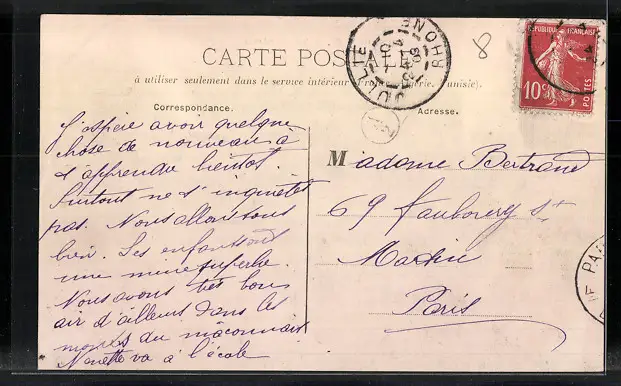 CARTE POSTALE
à utiliser seulement dans le service intérieur (France, Algérie, Tunisie).
Correspondance.
Adresse.
8
RÉPUBLIQUE FRANÇAISE
10c
POSTES
JUILLIÉ
RHONE
J'espère avoir quelque
chose de nouveau à
t'apprendre bientôt.
Surtout ne t'inquiète
pas. Nous allons tous
bien. Les enfants ont
une mine superbe.
Nous avons très bon
air d'ailleurs dans les
monts du mâconnais
Nanette va à l'école
Madame Bertrand
69 faubourg St
Martin
Paris
PAR